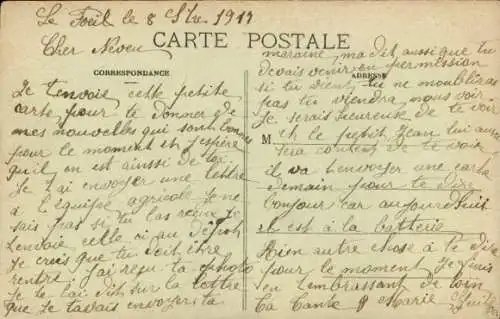 Le Foeil le 8 S bre 1911
Cher Neveu
CARTE POSTALE
CORRESPONDANCE
Je tenvoie cette petite
carte pour te donner de
mes nouvelles qui sont bonnes
pour le moment et j'espère
qu'il en est ainsi de toi
Je t'ai envoyer une lettre
a l'équipe agricole je ne
sais pas si tu las reçue je
tenvoie celle ci au dépôt
je crois que tu doit être
rentré j'ai reçu ta photo
je te l'ai dit sur la lettre
que je tavais envoyer ta
maraine ma dit aussi que tu
devais venir en permission
ADRESSE
si tu vient tu ne moublîras
pas tu viendra nous voir
je serais heureuse de te voir
M
et le petit Jean lui aussi
sera content de te voir
il va t'envoyer une carte
demain pour te dire
bonjour car aujourd'huit
il est à la batterie
Rien autre chose à te dire
pour le moment Je finis
en t'embrassant de loin
ta tante Marie